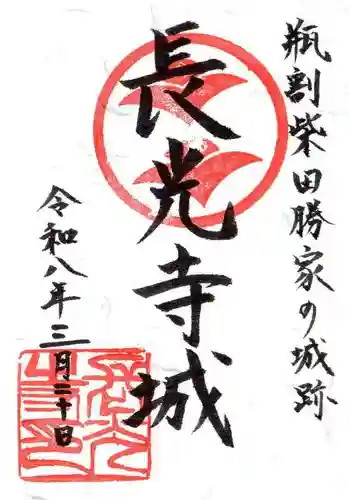 瓶割柴田勝家の城跡
長光寺城
令和八年三月二十日